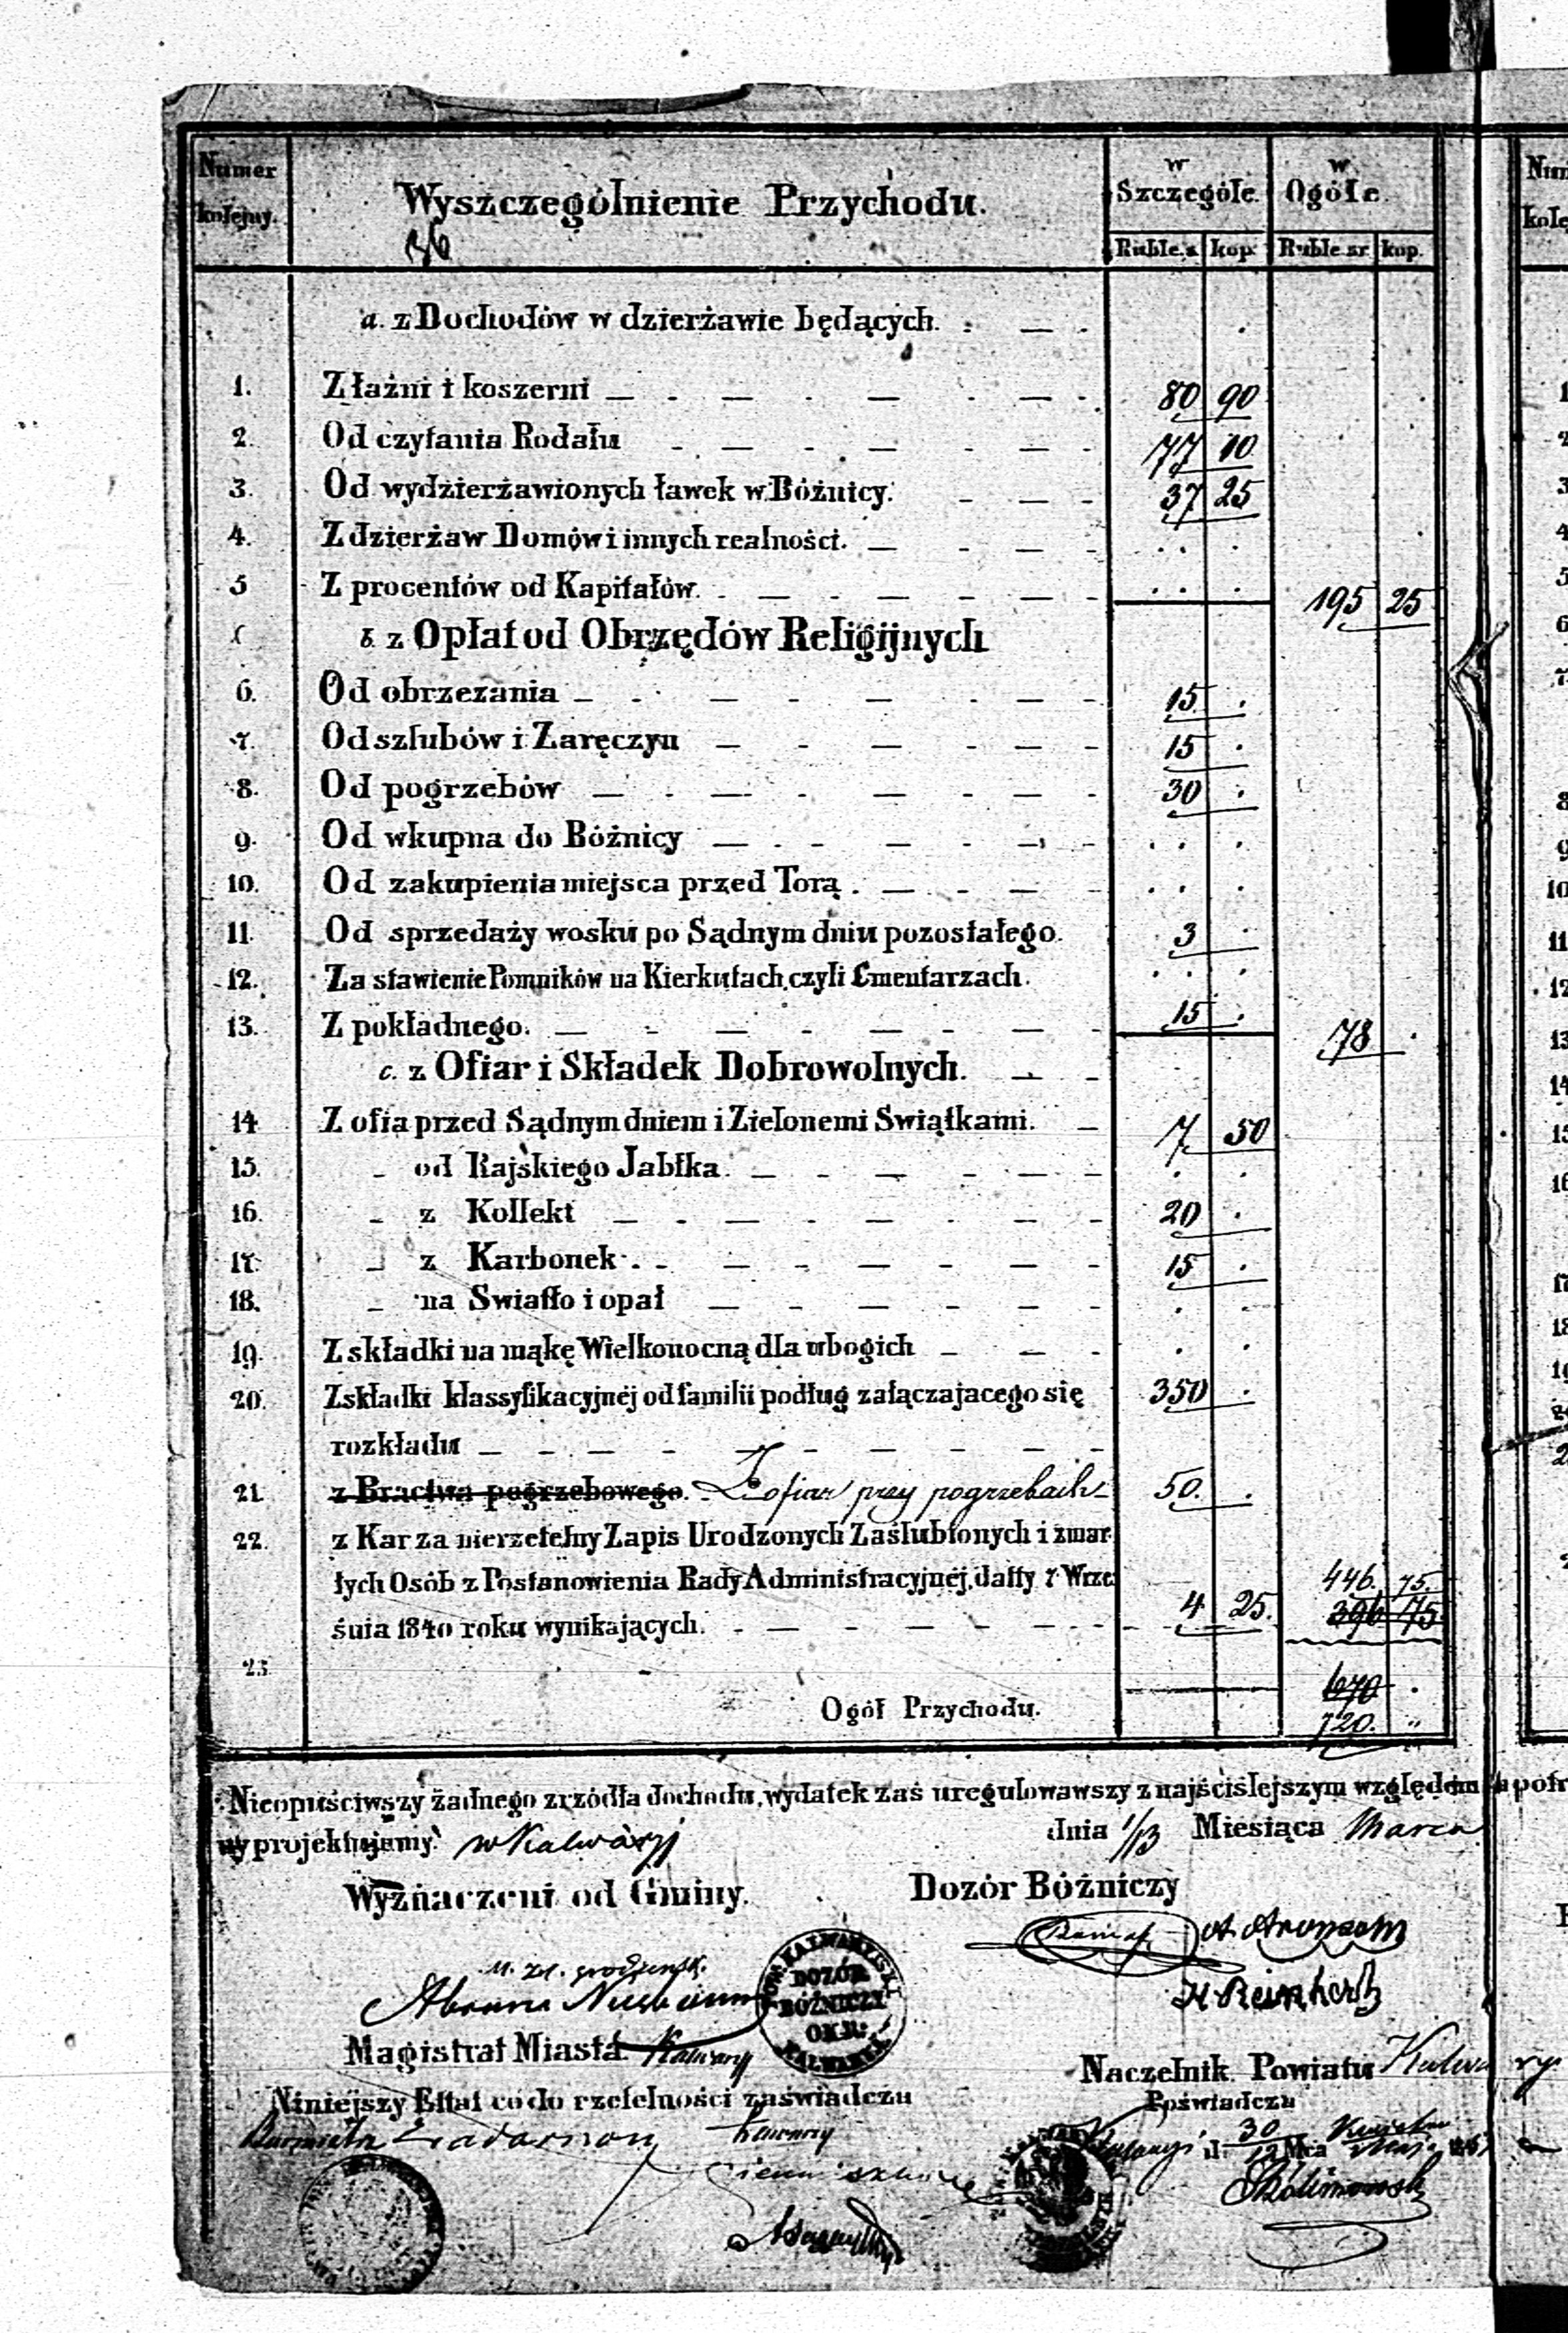 Numer kolejny. Wyszczególnienie Przychodu. w Szczególe. w Ogóle.
Ruble.s kop. Ruble sr kop.
a. z Dochodów w dzierżawie będących.
1. Z łaźni i koszerni 80 90
2. Od czytania Rodału 77 10
3. Od wydzierżawionych ławek w Bóżnicy. 37 25
4. Z dzierżaw Domów i innych realności.
5 Z procentów od Kapitałów. 195 25
b. z Opłat od Obrzędów Religijnych
6. Od obrzezania 15 .
7. Od szlubów i Zaręczyn 15 .
8. Od pogrzebów 30 .
9. Od wkupna do Bóżnicy
10. Od zakupienia miejsca przed Torą.
11. Od sprzedaży wosku po Sądnym dniu pozostałego. 3 .
12. Za stawienie Pomników na Kierkutach, czyli Cmentarzach.
13. Z pokładnego. 15 . 78 .
c. z Ofiar i Składek Dobrowolnych.
14 Z ofia przed Sądnym dniem i Zielonemi Swiątkami. 7 50
15. - od Rajskiego Jabłka.
16. - z Kollekt 20 .
17. - z Karbonek 15 .
18. - na Swiatło i opał
19. Z składki na mąkę Wielkonocną dla ubogich
20. Z składki klassyfikacyjnéj od familii podług załączajacego się 350 .
rozkładu
21. z Bractwa pogrzebowego. Z ofiar przy pogrzebach 50. .
22. z Kar za nierzetelny Zapis Urodzonych Zaślubionych i zmar-
łych Osób z Postanowienia Rady Administracyjnéj, datty 7 Wrze- 446. 75.
śnia 1840 roku wynikających. 4 25. 396 75
23. 670 .
Ogół Przychodu. 720. "
Nieopuściwszy żadnego zrzódła dochodu, wydatek zaś uregulowawszy z najściślejszym względem
projektujemy. w Kalwaryi dnia 1/13 Miesiąca Marca
Wyznaczeni od Gminy. Dozór Bóżniczy
A. Aronsohn
H. Reinhertz
DOZÓR
BÓŻNICZY
OKR:
Magistrat Miasta Kalwaryi
Naczelnik Powiatu
Niniejszy Ettat co do rzetelności zaświadcza
Poświadcza
30
12 Mca